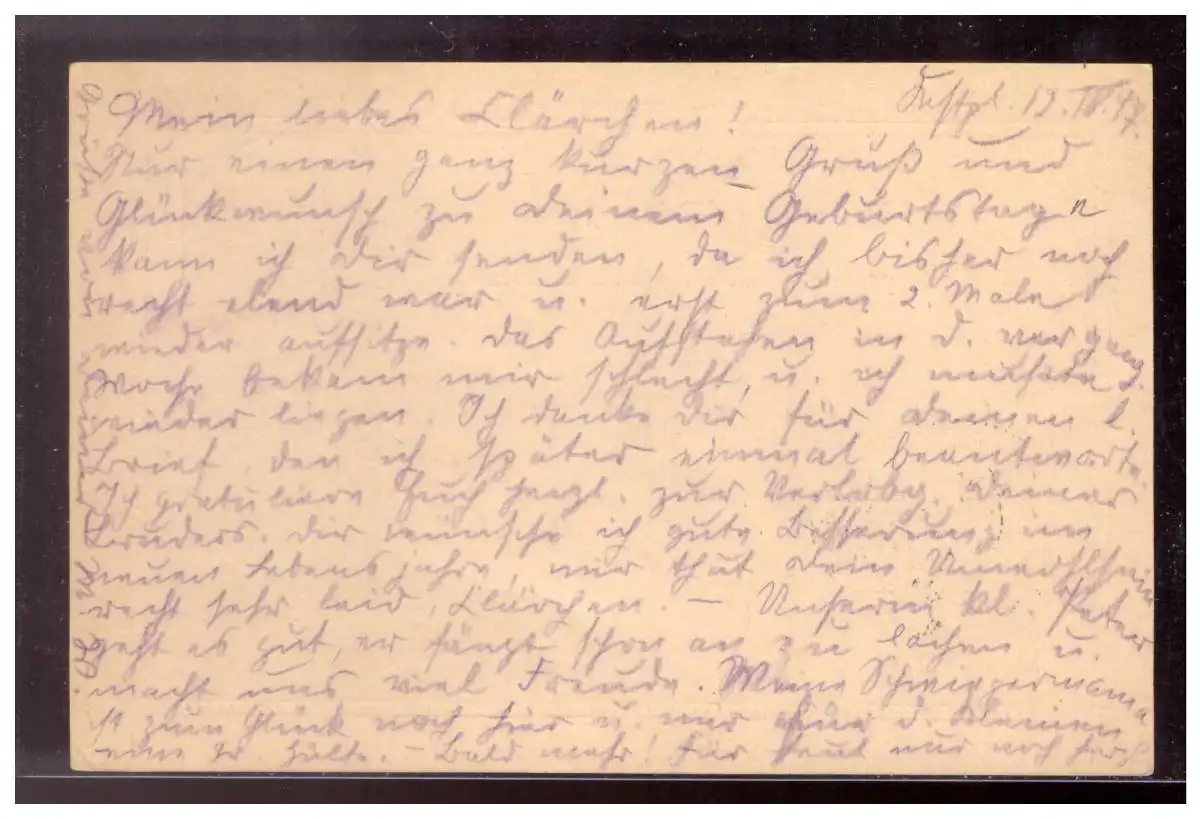 12. IV. 17.
Mein liebes Clärchen!
Nur einen ganz kurzen Gruß und
Glückwunsch zu deinem Geburtstag
kann ich dir senden, da ich bisher noch
recht elend war u. erst zum 2. Male
wieder aufsitze. Das Aufstehen in d. vergang.
Woche bekam mir schlecht, u. ich mußte
wieder liegen. Ich danke dir für deinen l.
Brief, den ich später einmal beantworte.
Ich gratuliere Euch herzl. zur Verlobg. deines
Bruders. Dir wünsche ich gute Besserung im
neuen Lebensjahre, mir thut dein Unwohlsein
recht sehr leid, Clärchen. — Unserm kl. Peter
geht es gut, er fängt schon an zu lachen u.
macht uns viel Freude. Meine Schwiegermama
ist zum Glück noch hier u. mir für d. Kleinen
eine Hülfe. — Bald mehr! Für heut nur noch herzl.